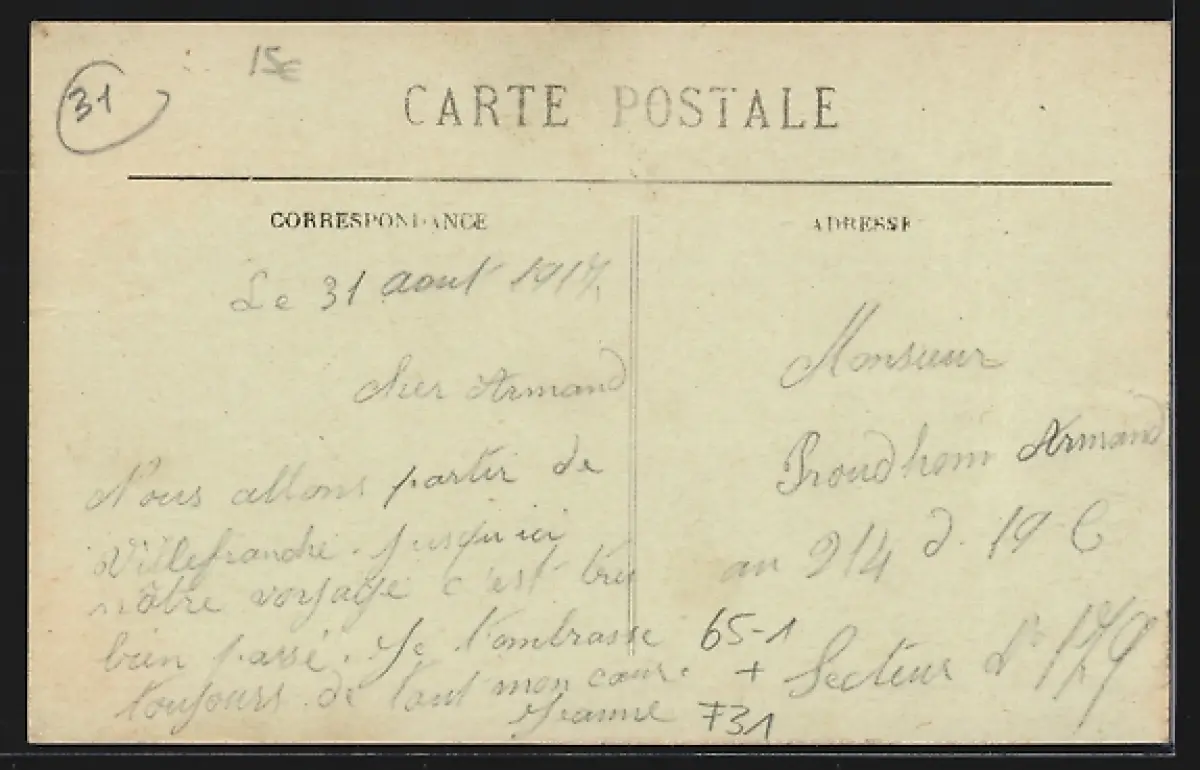 31
15€
CARTE POSTALE
CORRESPONDANCE
Le 31 aout 1917
Cher Armand
Nous allons partir de
Villefranche. Jusqu'ici
nôtre voyage c'est très
bien passé. Je t'embrasse
toujours de tout mon cœur.
Jeanne
ADRESSE
Monsieur
Proudhom Armand
au 214 d. 19 C
Secteur P. 179
65-1
+
731